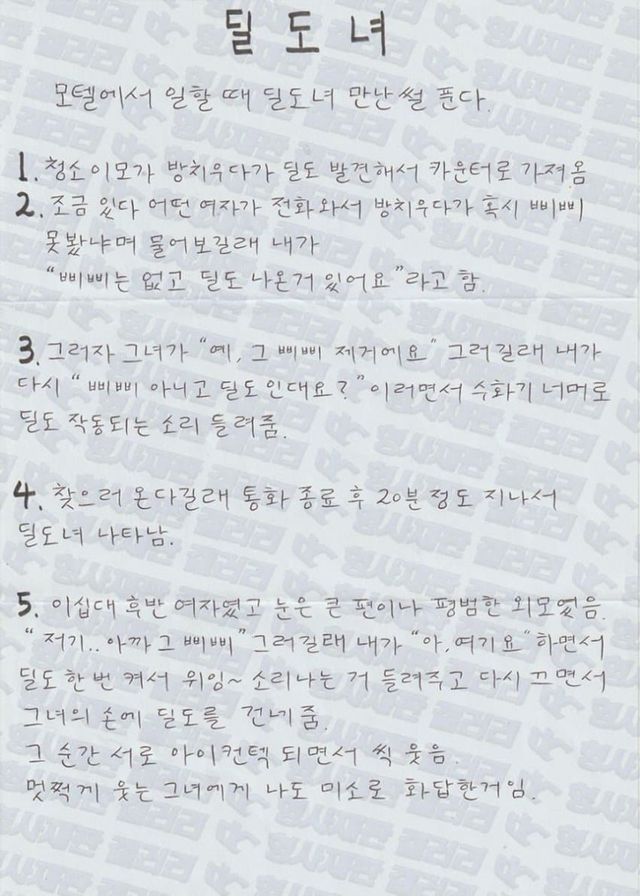 딜도녀
모텔에서 일할 때 딜도녀 만난썰 푼다.
1. 청소이모가 방치우다가 딜도 발견해서 카운터로 가져옴
2. 조금 있다 어떤 여자가 전화와서 방치우다가 혹시 삐삐
못봤냐며 물어보길래 내가
"삐삐는 없고 딜도 나온거 있어요"라고 함.
3. 그러자 그녀가 "예, 그 삐삐 제거에요" 그러길래 내가
다시 "삐삐 아니고 딜도인대요?"이러면서 수화기 너머로
딜도 작동되는 소리 들려줌.
4. 찾으러 온다길래 통화 종료 후 20분 정도 지나서
딜도녀 나타남.
5. 이십대 후반 여자였고 눈은 큰 편이나 평범한 외모였음.
"저기..아까 그 삐삐"그러길래 내가 "아,여기요"하면서
딜도 한번 켜서 위잉~ 소리나는 거 들려주고 다시 끄면서
그녀의 손에 딜도를 건네줌.
그 순간 서로 아이컨텍 되면서 씩 웃음.
멋쩍게 웃는 그녀에게 나도 미소로 화답한거임.